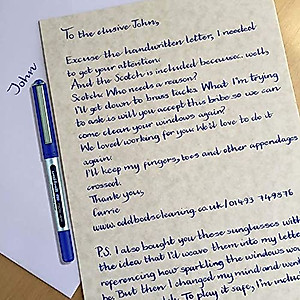 John
To the elusive John,
Excuse the handwritten letter, I needed
to get your attention.
And the Scotch is included because.. well,
Scotch! Who needs a reason?
I'll get down to brass tacks. What I'm trying
to ask is will you accept this bribe so we can
come clean your windows again?
We loved working for you. We'd love to do it
again.
I'll keep my fingers, toes and other appendages
crossed.
Thank you,
Carrie
www.oddbodscleaning.co.uk/01493 749576
P.S. I also bought you these sunglasses with
the idea that I'd weave them into my letter
referencing how sparkling the windows wou
be. But then I changed my mind and went
To play it safe, I'm inclu